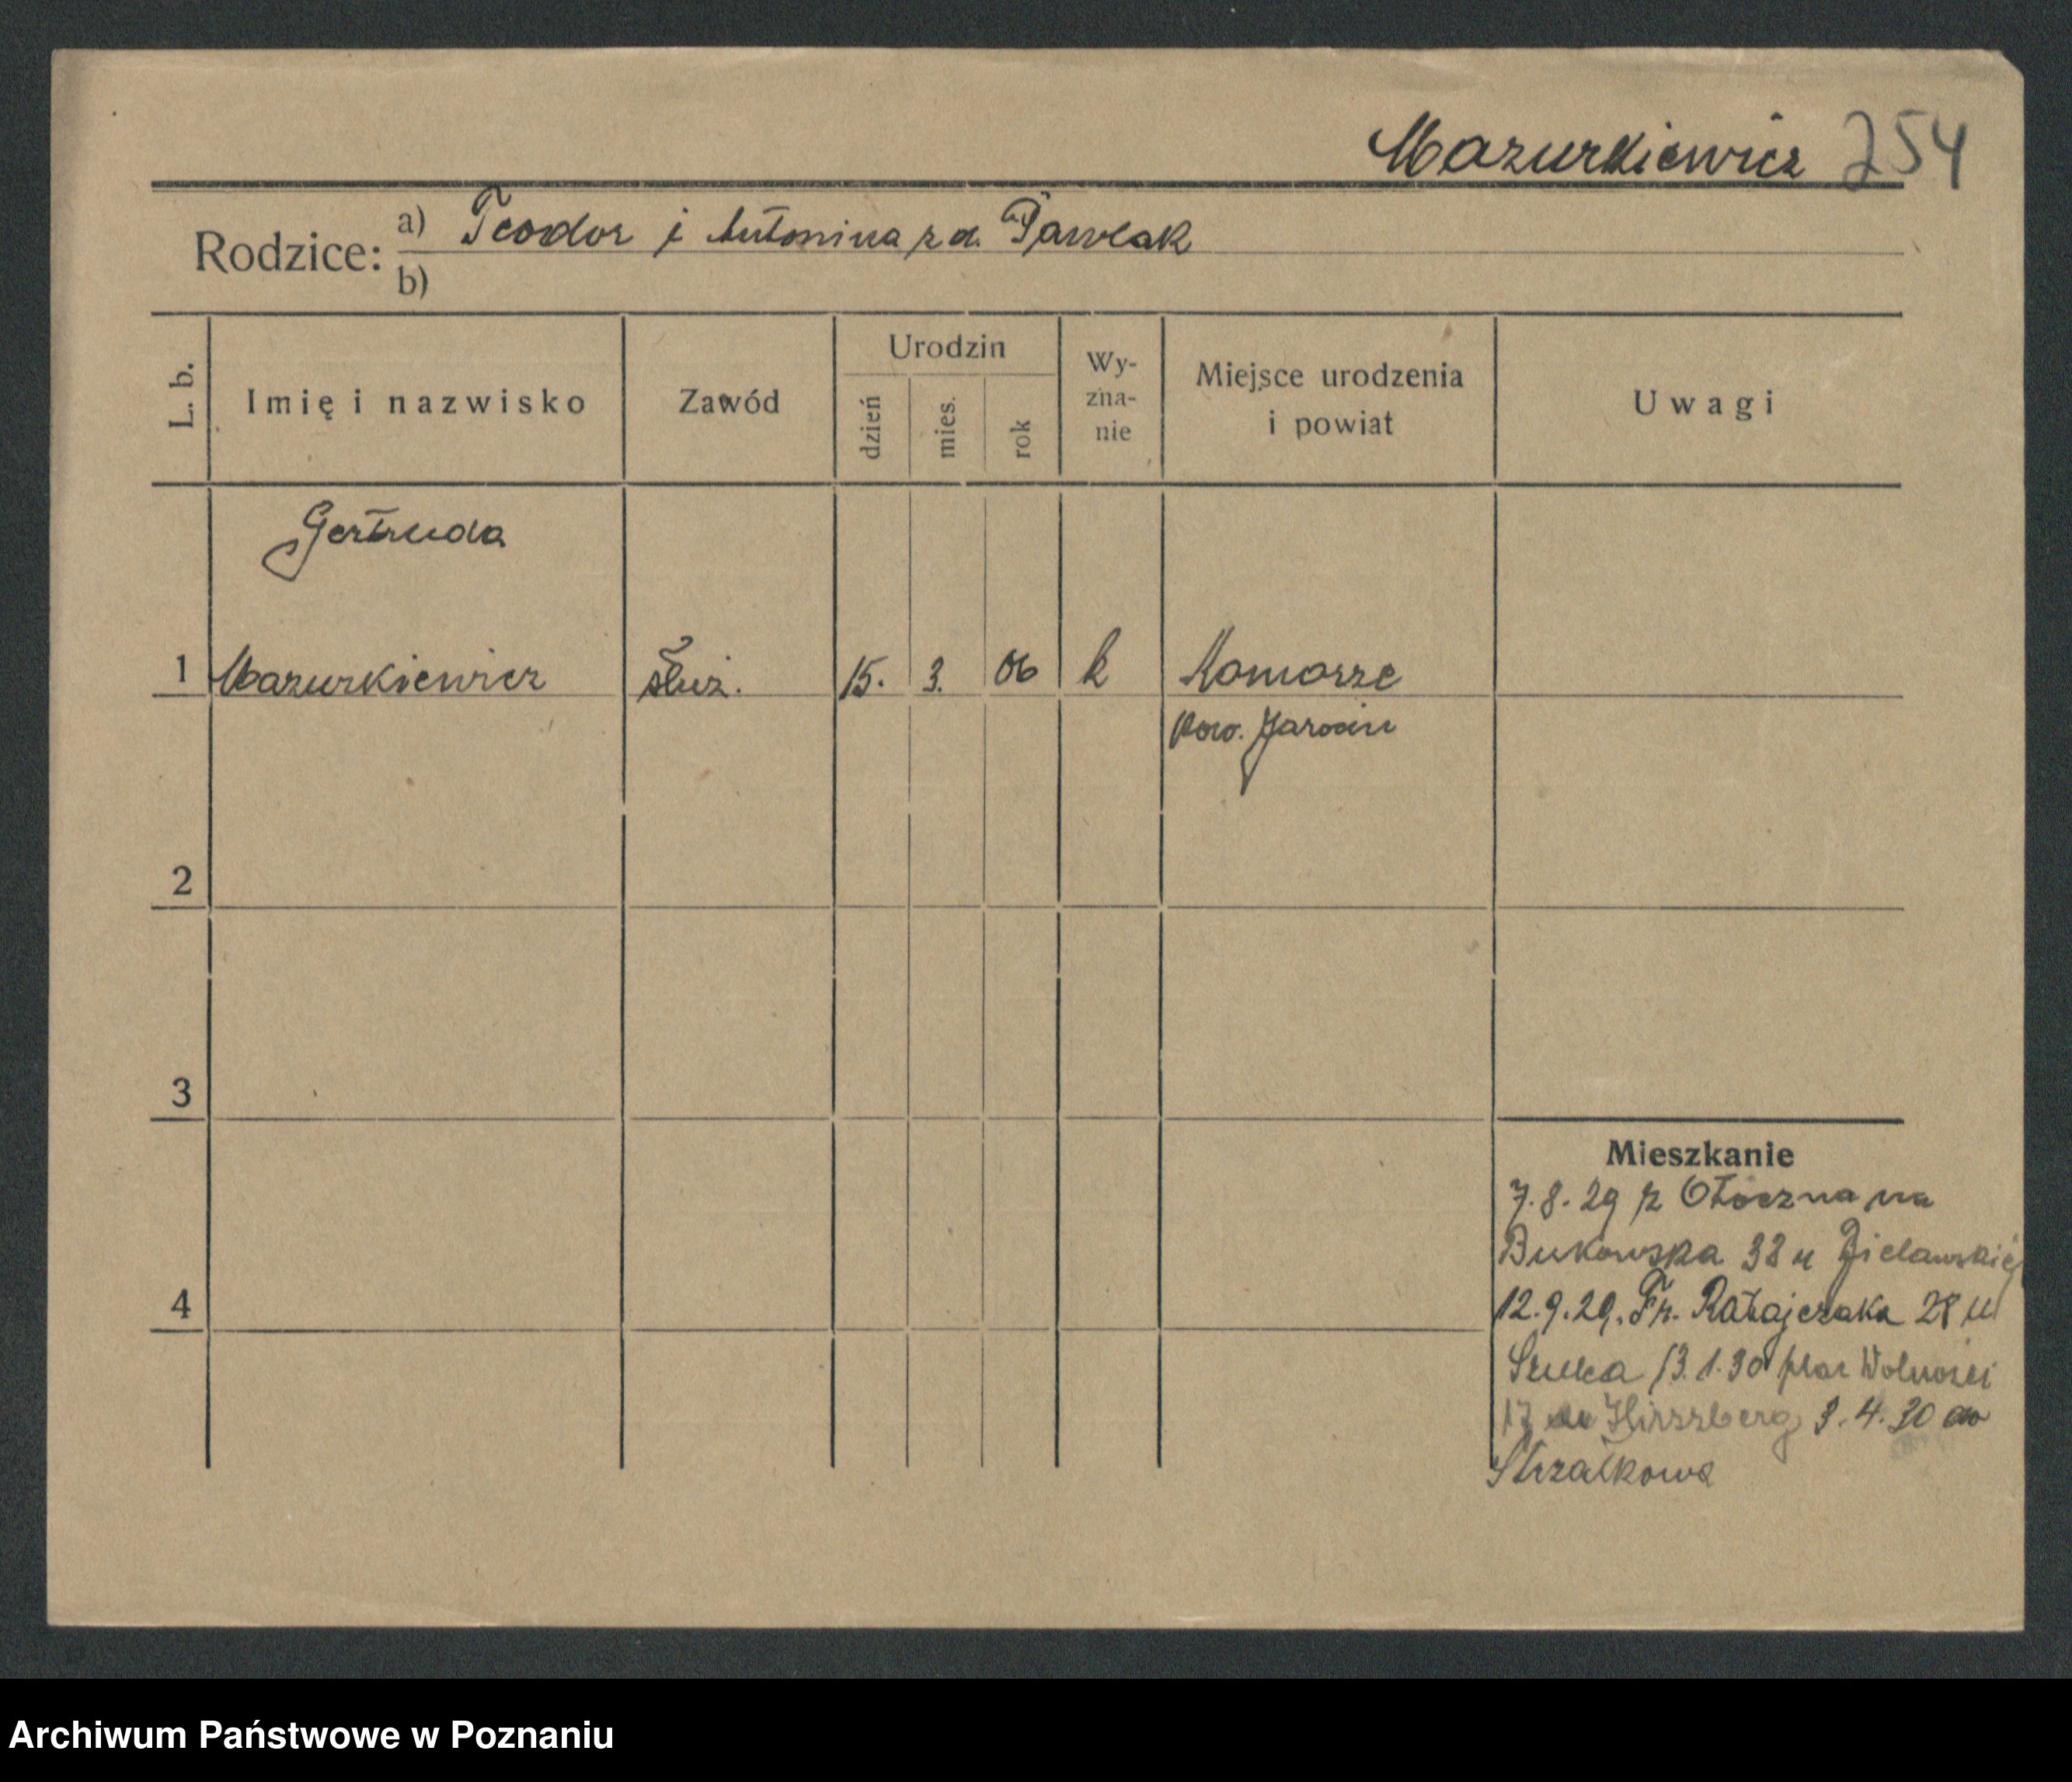 Mazurkiewicz 254
Rodzice: a) Teodor i Antonina z d. Pawlak
b)
L. b. Imię i nazwisko Zawód Urodzin dzień mies. rok Wy-zna-nie Miejsce urodzenia i powiat Uwagi
Gertruda
1 Mazurkiewicz służ. 15. 3. 06 k Komorze
pow. Jarocin
2
3
Mieszkanie
7.8.29 z Otoczna na
Bukowska 33 u Zielawskiej
4
12.9.29. Fr. Ratajczaka 28 u
Szulca 13.1.30 plac Wolności
17 u Hirszberg 3.4.30 do
Strzałkowa
Archiwum Państwowe w Poznaniu